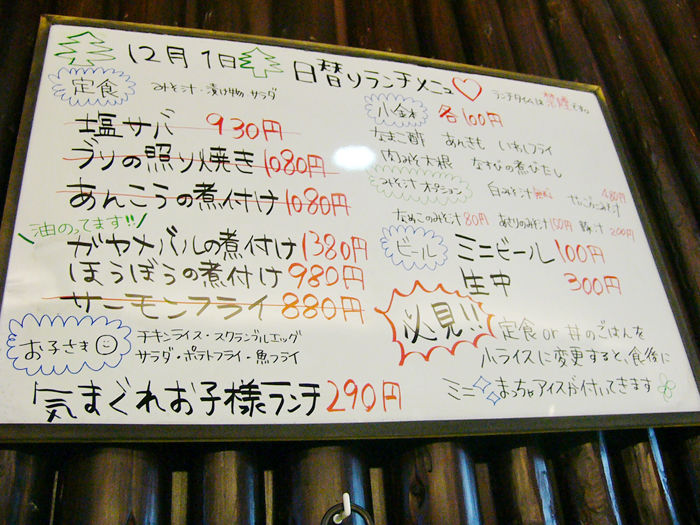 12月1日 日替りランチメニュー
ランチタイムは禁煙です。
定食 みそ汁・漬け物・サラダ
塩サバ 930円
ブリの照り焼き 1080円
あんこうの煮付け 1080円
油のってます!!
ガヤメバルの煮付け 1380円
ほうぼうの煮付け 980円
サーモンフライ 880円
お子さま
チキンライス・スクランブルエッグ
サラダ・ポテトフライ・魚フライ
気まぐれお子様ランチ 290円
小鉢 各100円
なまこ酢 あんきも いわしフライ
肉みそ大根 なすびの煮びたし
みそ汁オプション 白みそ汁無料
なめこのみそ汁 80円 あさりのみそ汁 150円 豚汁 200円
ビール ミニビール 100円
生中 300円
必見!! 定食 or 丼のごはんを
小ライスに変更すると、食後に
ミニ まっちゃアイスが付いてきます